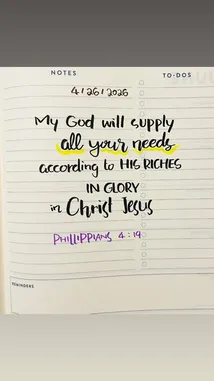 NOTES TO-DOS
4/26/2026
My God will supply
all your needs
according to HIS RICHES
IN GLORY
in Christ Jesus
PHILLIPPIANS 4:19
REMINDERS